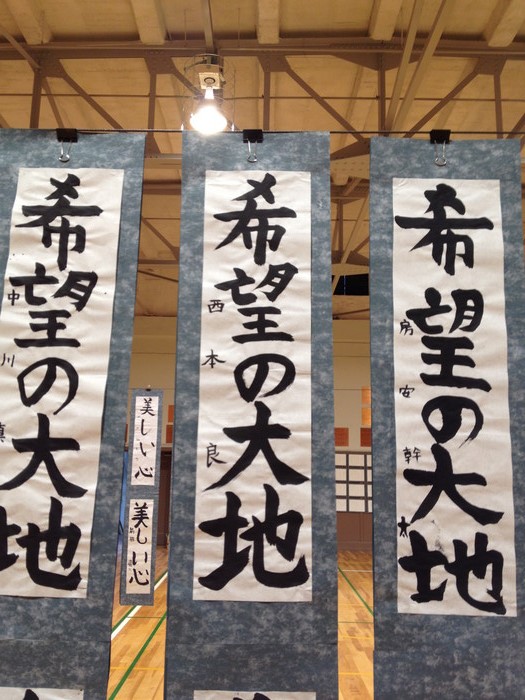 希望の大地
房安幹太
希望の大地
西本良
希望の大地
中川真
美しい心
美しい心